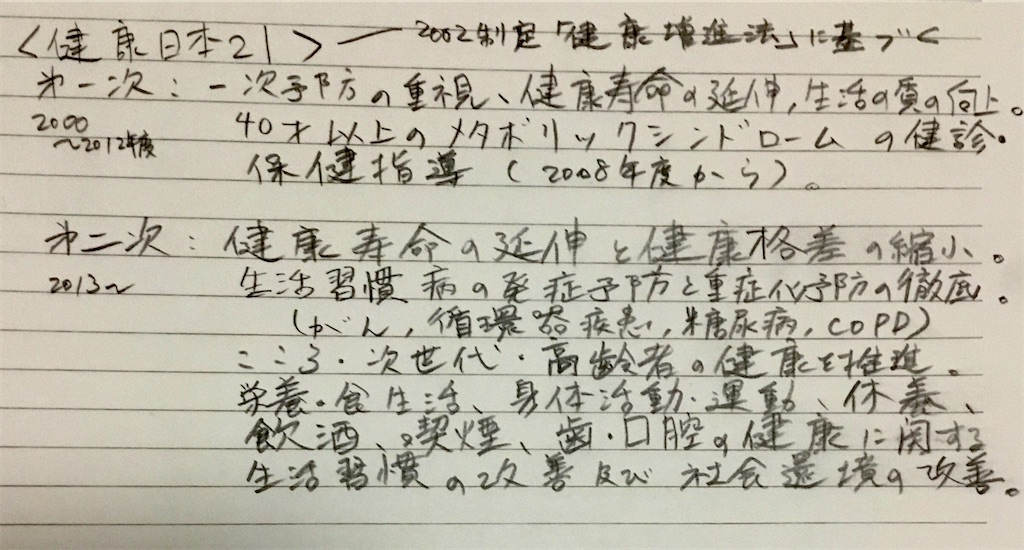 <健康日本21> ― 2002制定「健康増進法」に基づく
第一次：一次予防の重視、健康寿命の延伸,生活の質の向上。
2000 40才以上のメタボリックシンドロームの健診。
～2012年度
保健指導(2008年度から)。
第二次：健康寿命の延伸と健康格差の縮小。
2013～ 生活習慣病の発症予防と重症化予防の徹底。
(がん,循環器疾患,糖尿病,COPD)
こころ・次世代・高齢者の健康を推進。
栄養・食生活、身体活動・運動、休養、
飲酒、喫煙、歯・口腔の健康に関する
生活習慣の改善及び社会還境の改善。